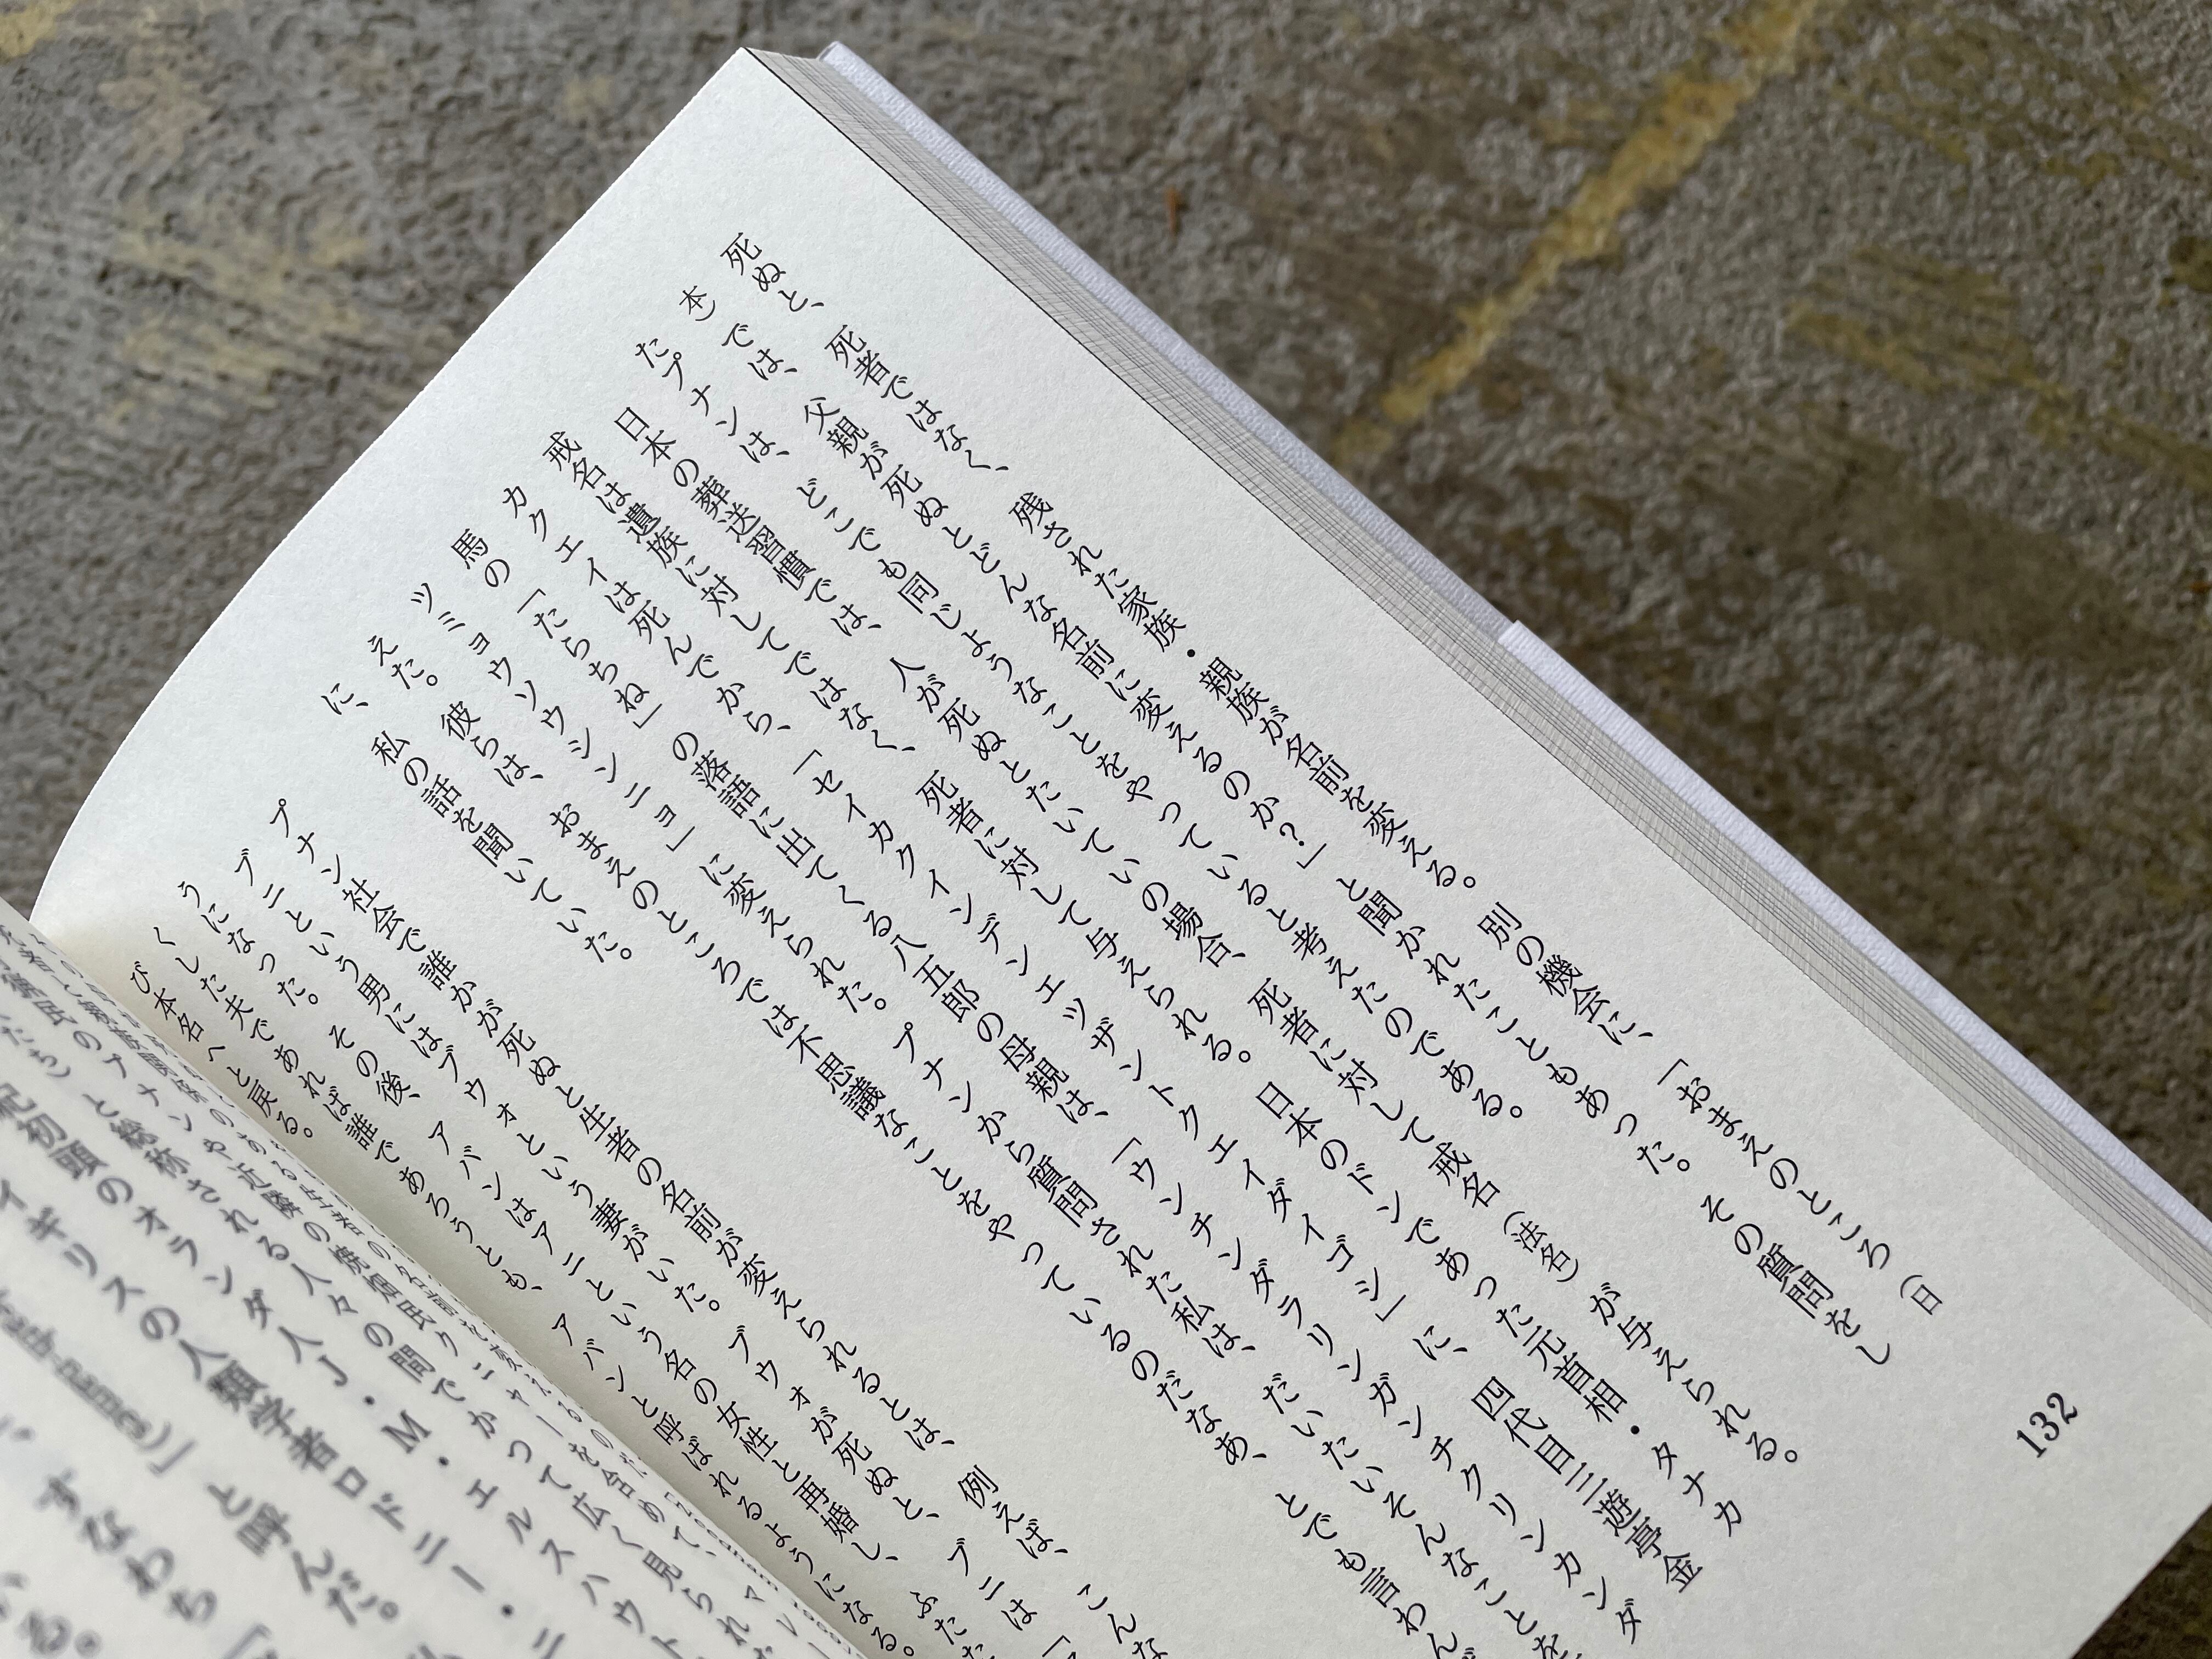 132
死ぬと、死者ではなく、残された家族・親族が名前を変える。別の機会に、「おまえのところ(日
本)では、父親が死ぬとどんな名前に変えるのか?」と聞かれたこともあった。その質問をし
たプナンは、どこでも同じようなことをやっていると考えたのである。
日本の葬送習慣では、人が死ぬとたいていの場合、死者に対して戒名(法名)が与えられる。
戒名は遺族に対してではなく、死者に対して与えられる。日本のドンであった元首相・タナカ
カクエイは死んでから、「セイカクインデンエツザントクエイダイゴジ」に、四代目三遊亭金
馬の「たらちね」の落語に出てくる八五郎の母親は、「ウンチンダラリンガンチクリンカンダ
ツミョウソウシンニョ」に変えられた。プナンから質問された私は、だいたいそんなことを
えた。彼らは、おまえのところでは不思議なことをやっているのだなあ、とでも言わん
に、私の話を聞いていた。
プナン社会で誰かが死ぬと生者の名前が変えられるとは、例えば、こんな
ブニという男にはブウォという妻がいた。ブウォが死ぬと、ブニは「
うになった。その後、アバンはアニという名の女性と再婚し、ふたた
くした夫であれば誰であろうとも、アバンと呼ばれるようになる。
び本名へと戻る。
たち)と総称される人々の間でかつて広く見られ
紀初頭のオランダ人J・M・エルスハウト
イギリスの人類学者ロドニー・ニ
と呼んだ。
すなわち「